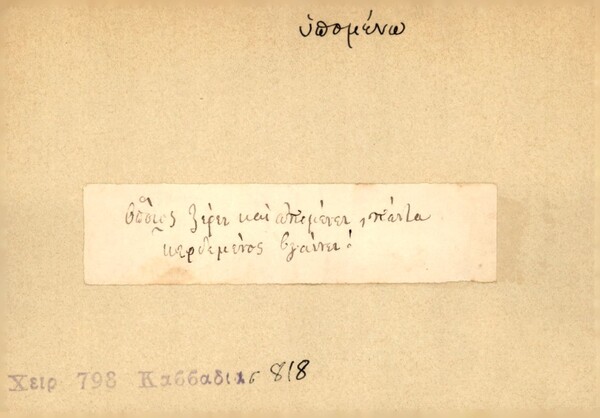 ὑπομένω
Ὅποιος ξέρει καὶ ἀπομένει, πάντα
κερδεμένος βγαίνει.
Χειρ 798 Κασσαδίας 818